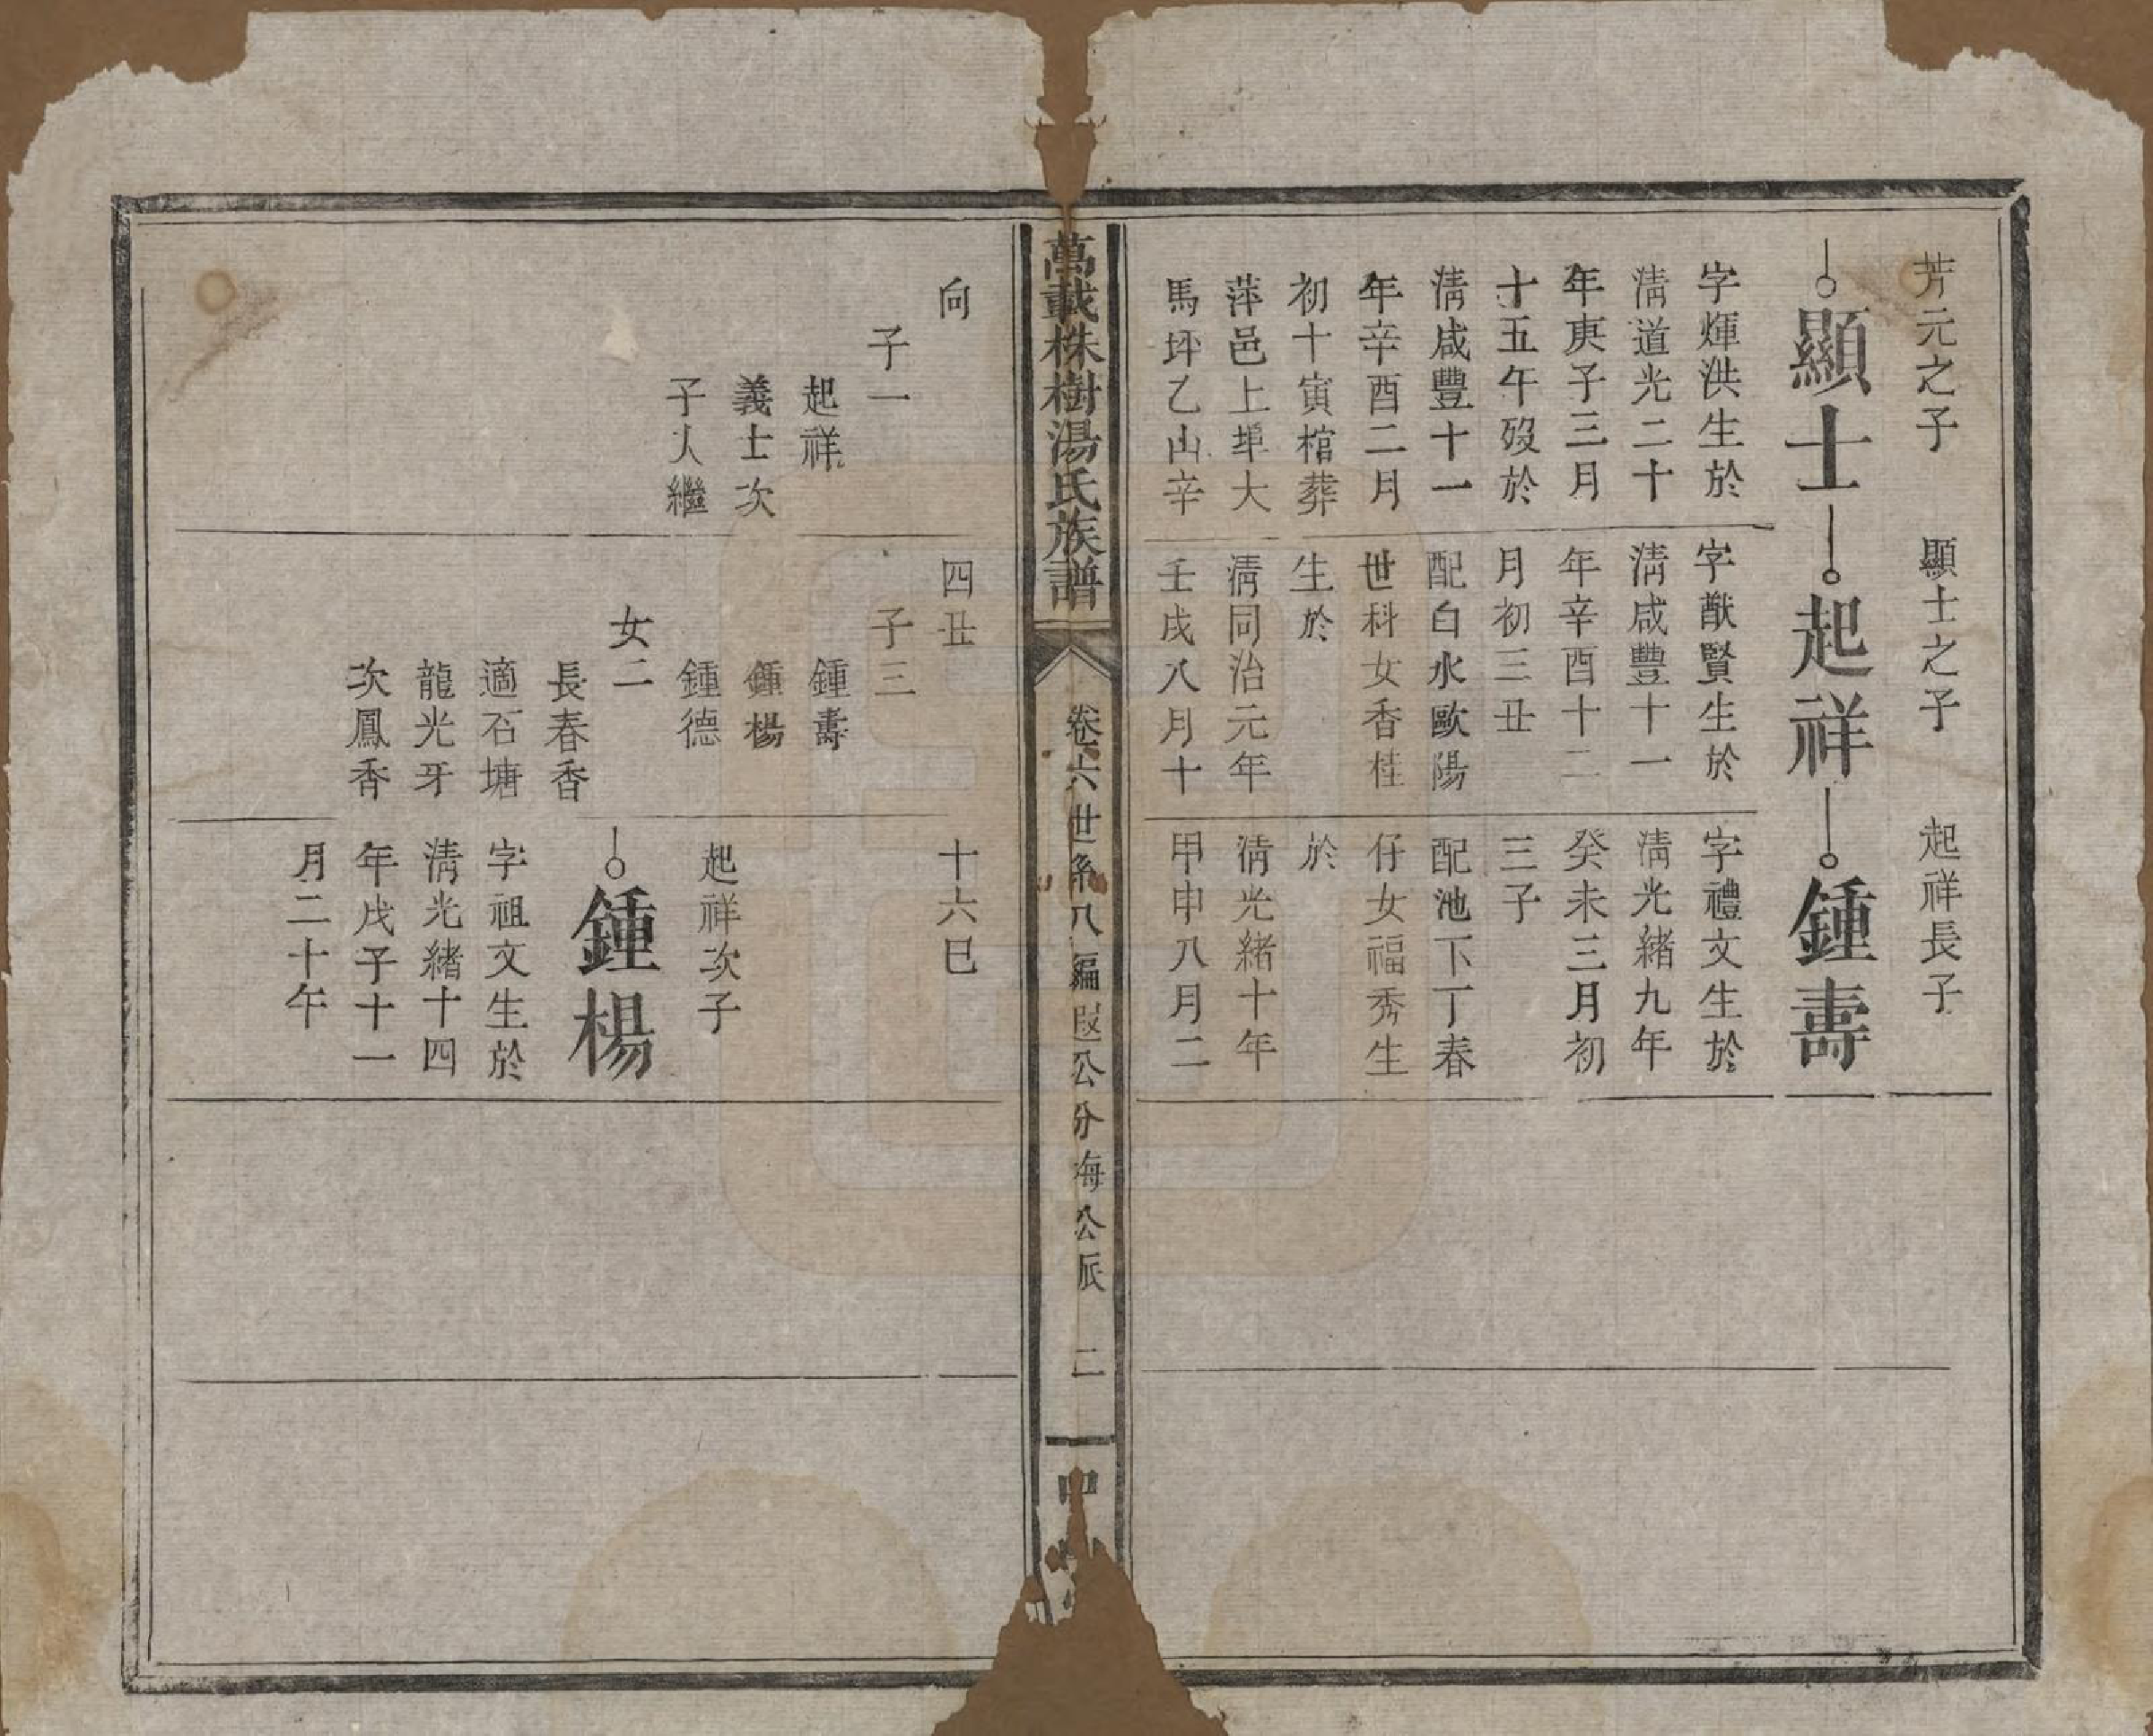 芳元之子
顯士
字煇洪生於
淸道光二十
年庚子三月
十五午歿於
淸咸豐十一
年辛酉二月
初十寅棺葬
萍邑上埠大
馬坪乙山辛
顯士之子
起祥
字猷賢生於
淸咸豐十一
年辛酉十二
月初三丑
配白水歐陽
世科女香桂
生於
淸同治元年
壬戌八月十
起祥長子
鍾壽
字禮文生於
淸光緒九年
癸未三月初
三子
配池下丁春
仔女福秀生
於
淸光緒十年
甲申八月二
萬載株樹湯氏族譜
卷六世系八編 公分海公派 二
向
子一
起祥
義士次
子人繼
四丑
子三
鍾壽
鍾楊
鍾德
女二
長春香
適石塘
龍光牙
次鳳香
十六巳
起祥次子
鍾楊
字祖文生於
淸光緒十四
年戊子十一
月二十午